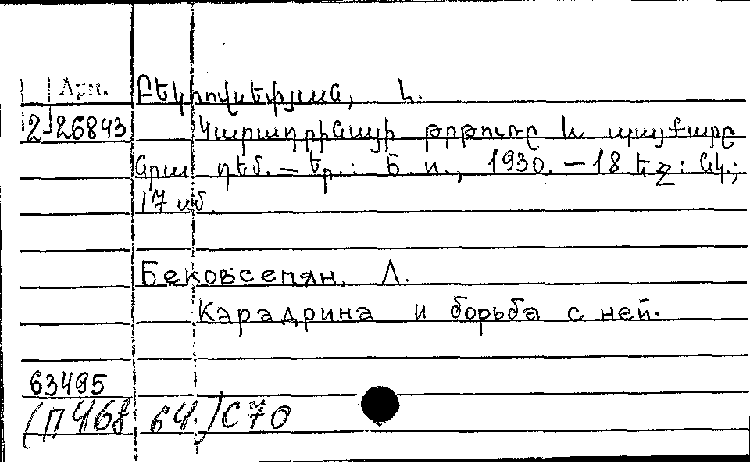 Арм. Բեկհովսեփյան, Լ.
2-26843 Կարադրինայի թրթուռը և պայքարը
նրա դեմ. — Եր.: Б. и., 1930. — 18 եջ: նկ.;
17 սմ.
Бековсепян, Л.
Карадрина и борьба с ней.
63495
(П 468 64.) С70